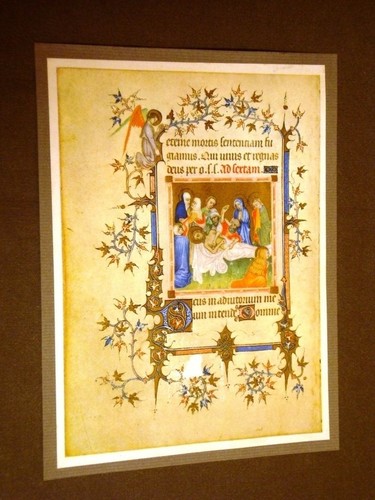 eterne mortis sentenciam fu
giamus. Qui vivis et regnas
deus per o. s. s. Ad sextam.
Deus in adiutorium me
um intende Domine